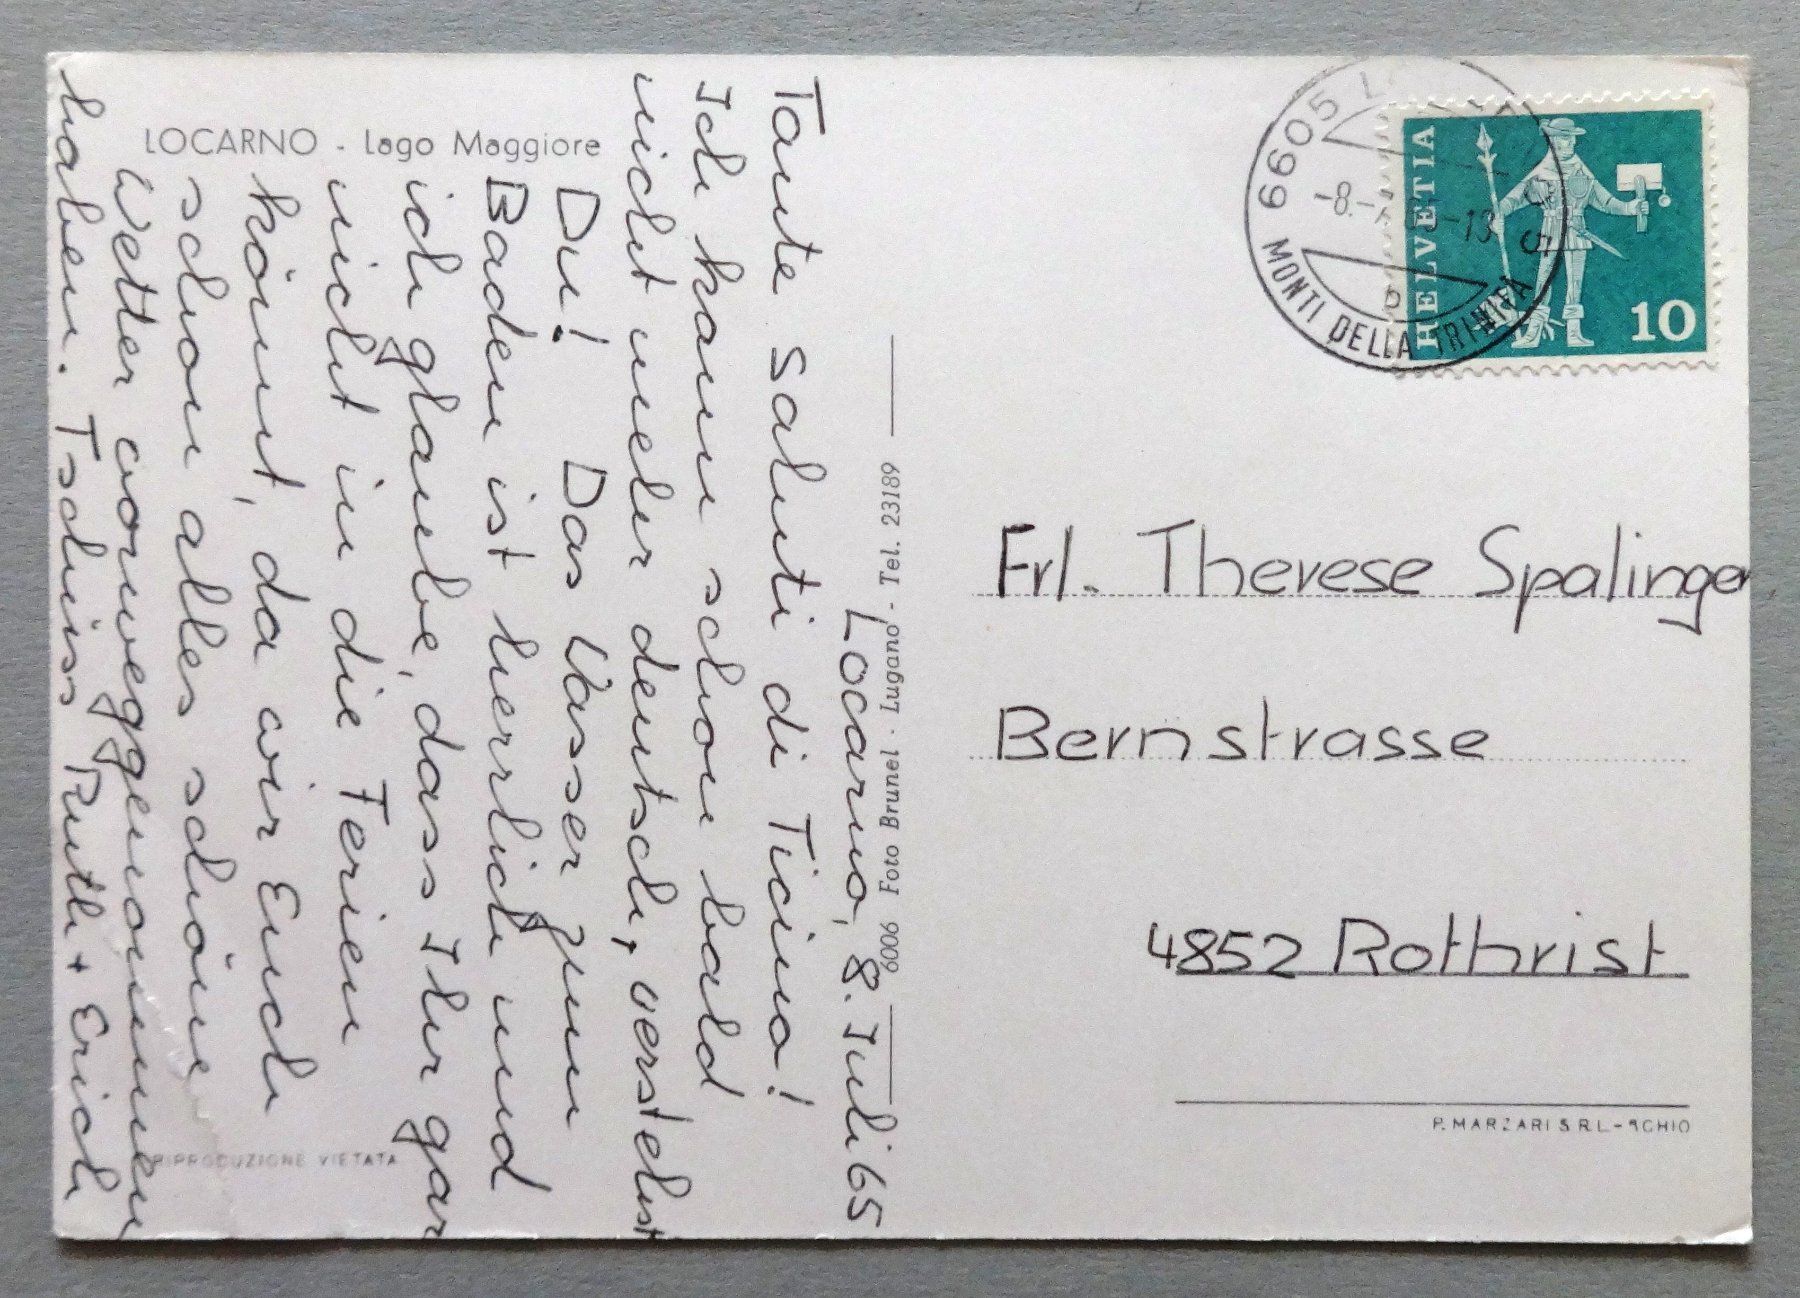 LOCARNO - Lago Maggiore
Locarno, 8. Juli 65
Tante saluti di Ticino!
Ich kann schon bald
nicht mehr deutsch, verstehst
Du! Das Wasser zum
Baden ist herrlich und
ich glaube, dass Ihr gar
nicht in die Ferien
könnt, da wir Euch
schon alles schöne
Wetter vorweggenommen
haben. Tschüss Ruth + Erich
RIPRODUZIONE VIETATA
6006 Foto Brunel · Lugano - Tel. 23189
6605
-8.- -13
MONTI DELLA TRINITÀ
HELVETIA
10
Frl. Therese Spalinger
Bernstrasse
4852 Rothrist
P. MARZARI S.R.L. - SCHIO